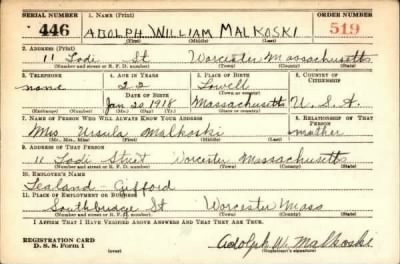 SERIAL NUMBER 1. NAME (Print) ORDER NUMBER
446 ADOLPH WILLIAM MALKOSKI 519
(First) (Middle) (Last)
2. ADDRESS (Print)
11 Lodi St Worcester Massachusetts
(Number and street or R. F. D. number) (Town) (County) (State)
3. TELEPHONE 4. AGE IN YEARS 5. PLACE OF BIRTH 6. COUNTRY OF CITIZENSHIP
none 22 Lowell
DATE OF BIRTH (Town or county)
Jan 20 1918 Massachusetts U. S. A.
(Exchange) (Number) (Mo.) (Day) (Yr.) (State or country)
7. NAME OF PERSON WHO WILL ALWAYS KNOW YOUR ADDRESS 8. RELATIONSHIP OF THAT PERSON
Mrs Ursula Malkoski mother
(Mr., Mrs., Miss) (First) (Middle) (Last)
9. ADDRESS OF THAT PERSON
11 Lodi Street Worcester Massachusetts
(Number and street or R. F. D. number) (Town) (County) (State)
10. EMPLOYER'S NAME
Lealand - Gifford
11. PLACE OF EMPLOYMENT OR BUSINESS
Southbridge St Worcester Mass
(Number and street or R. F. D. number) (Town) (County) (State)
I AFFIRM THAT I HAVE VERIFIED ABOVE ANSWERS AND THAT THEY ARE TRUE.
REGISTRATION CARD
D. S. S. Form 1 (over) Adolph W. Malkoski
(Registrant's signature)